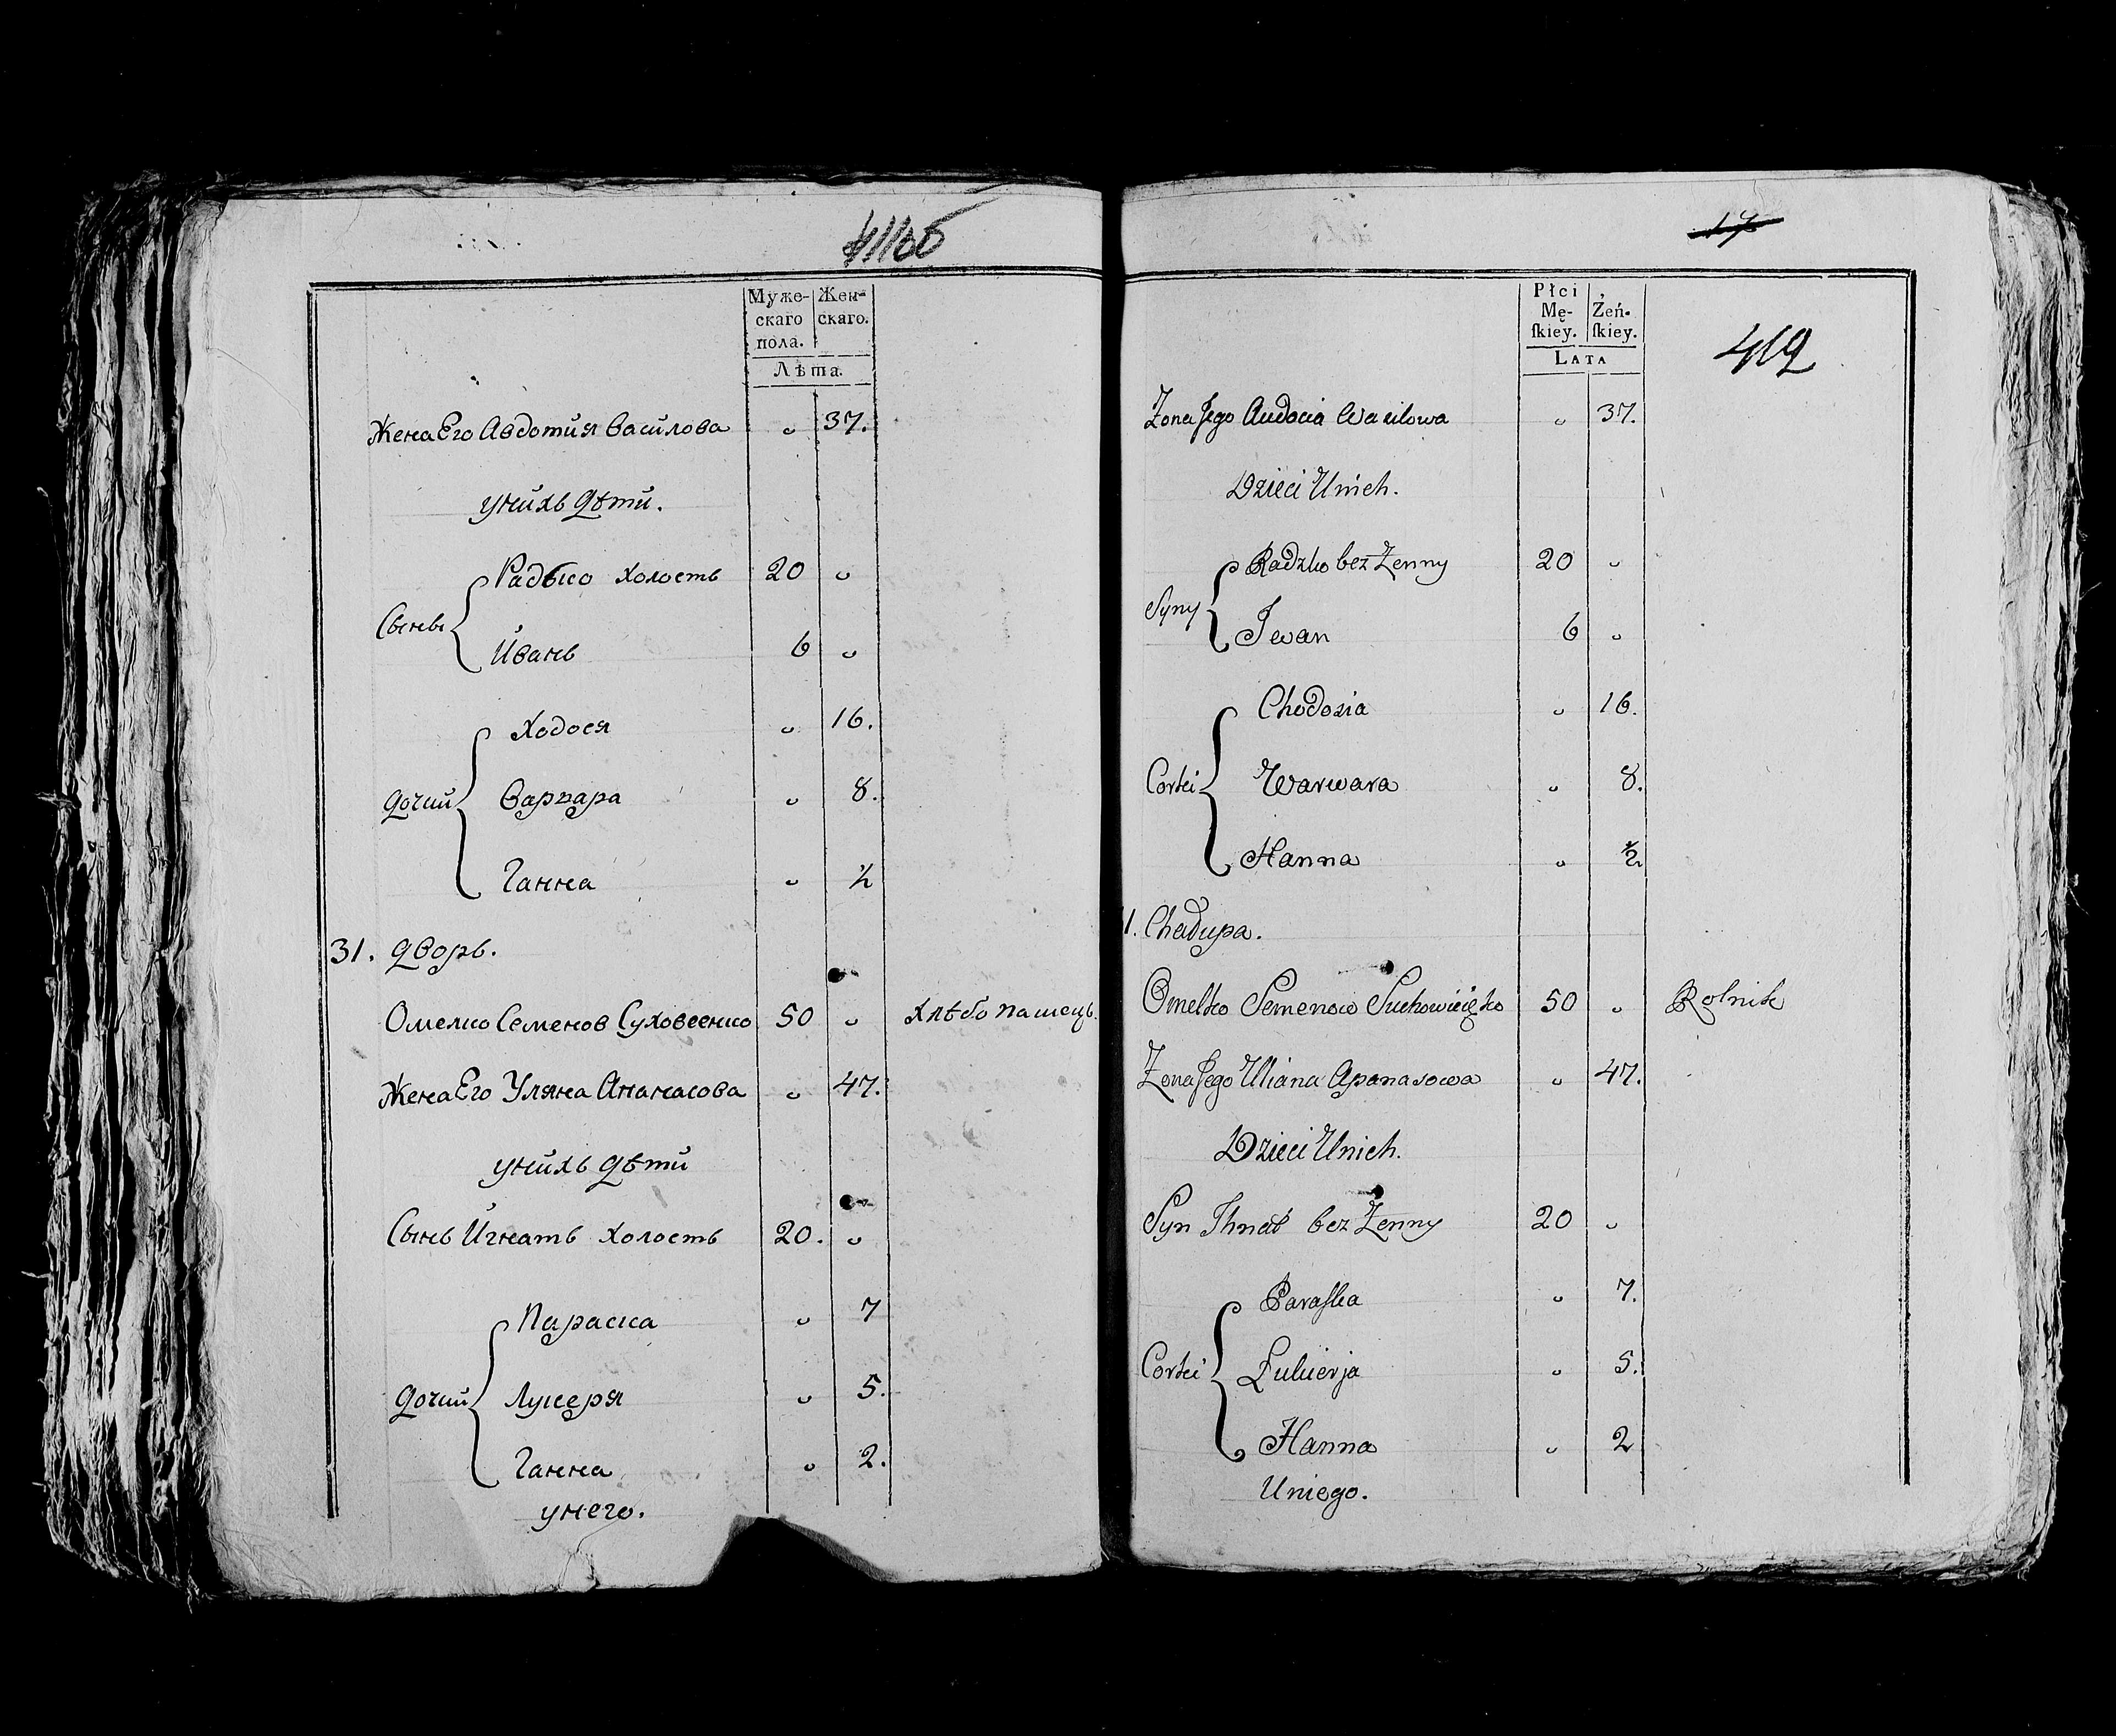 411об
Муже-
скаго
пола.
Жен-
скаго.
Лѣта.
Жена Его Авдотия Василова 〃 37.
у нихъ дѣти.
Сыны
Радько холостъ 20 〃
Иванъ 6 〃
Дочки
Ходося 〃 16.
Варвара 〃 8.
Ганна 〃 ½
31. Дворъ.
Омелко Семенов Суховеенко 50 〃 Хлѣбопашецъ.
Жена Его Уляна Апанасова 〃 47.
у нихъ дѣти
Сынъ Игнатъ холостъ 20. 〃
Дочки
Параска 〃 7
Лукеря 〃 5.
Ганна 〃 2.
у него.
17
412
Płci
Mę-
ſkiey.
Żeń-
ſkiey.
Lata
Zona Jego Audocia Wasilowa 〃 37.
Dzieci Unich.
Syny
Radzko bez Zenny 20 〃
Iwan 6 〃
Corki
Chodosia 〃 16.
Warwara 〃 8.
Hanna 〃 ½
1. Chałupa.
Omelko Semenow Suchowieięko 50 〃 Rolnik
Zona Jego Uliana Apanasowa 〃 47.
Dzieci Unich.
Syn Ihnat bez Zenny 20 〃
Corki
Paraſka 〃 7.
Łukierja 〃 5.
Hanna 〃 2
Uniego.